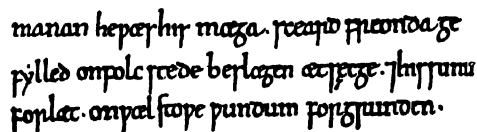 manan heƿæshis mæga. sceard freonda ge
fẏlled onfolc stede beslægen ætsęcge. ⁊hissunu
forlæt. onƿæl stoƿe ƿundum forgrunden.